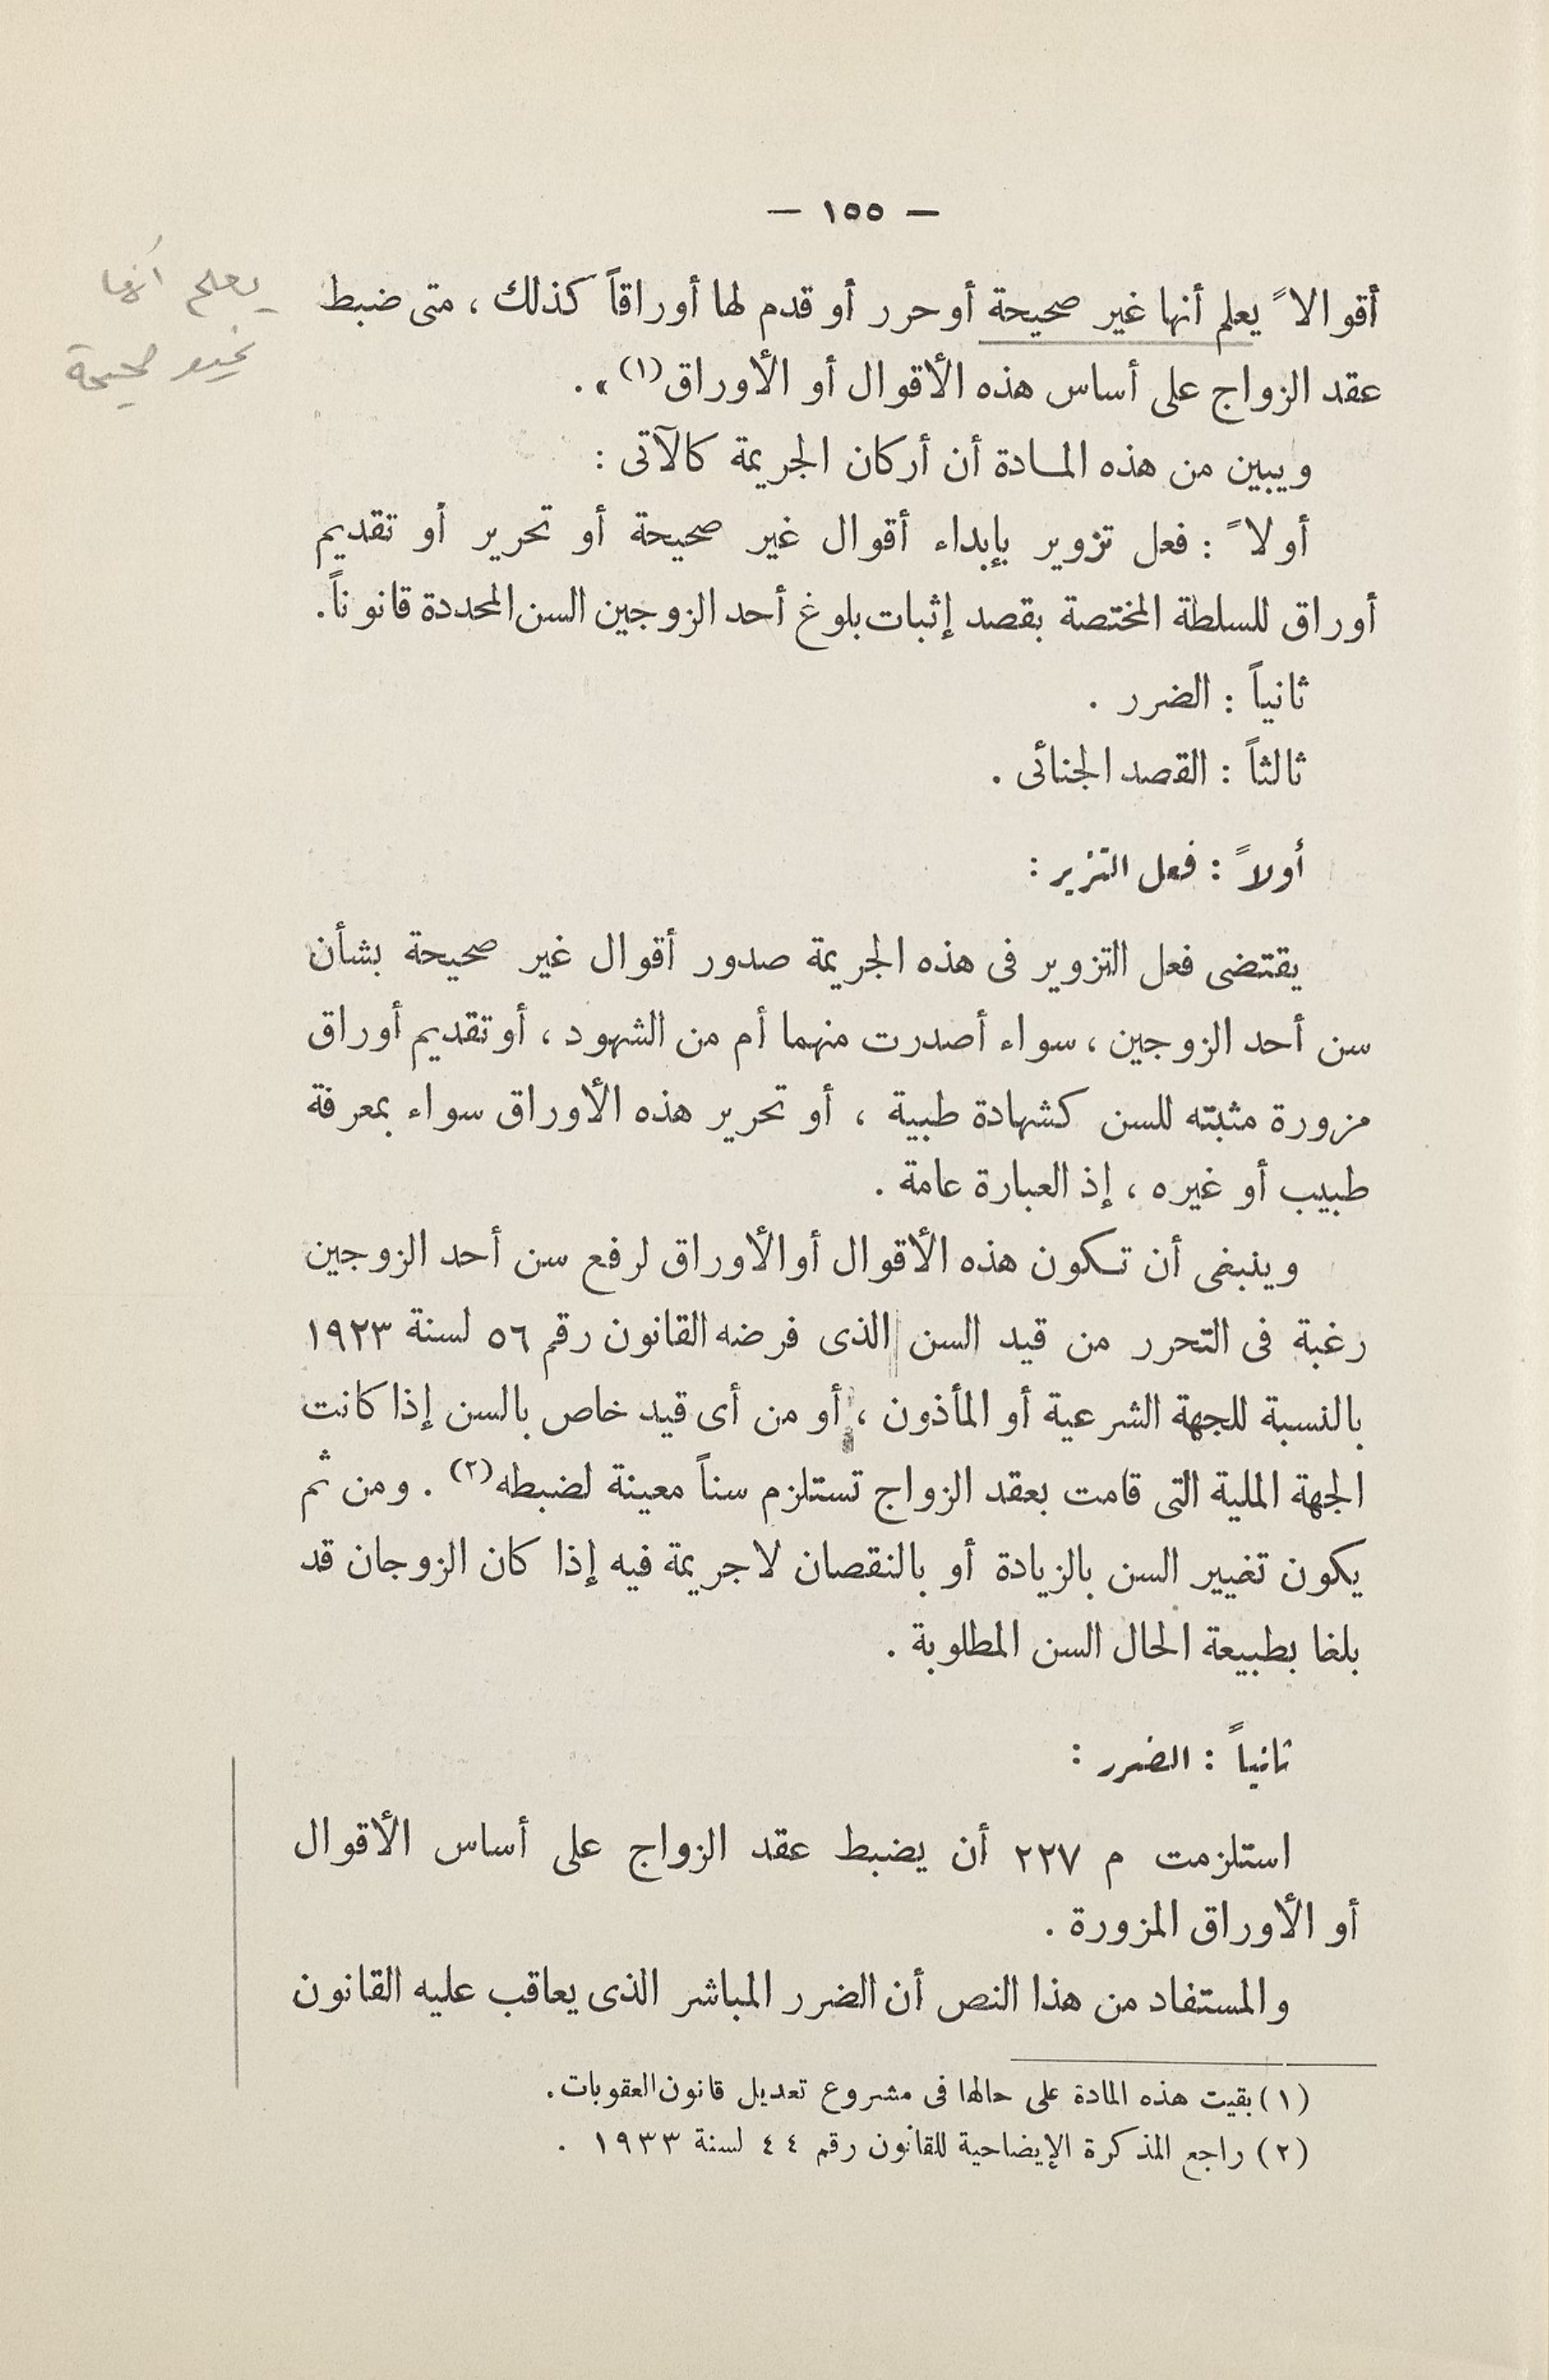 — ١٥٥ —
أقوالاً يعلم أنها غير صحيحة أو حرر أو قدم لها أوراقاً كذلك ، متى ضبط
عقد الزواج على أساس هذه الأقوال أو الأوراق(١) » .
ويبين من هذه المادة أن أركان الجريمة كالآتى :
أولاً : فعل تزوير بإبداء أقوال غير صحيحة أو تحرير أو تقديم
أوراق للسلطة المختصة بقصد إثبات بلوغ أحد الزوجين السن المحددة قانوناً .
ثانياً : الضرر .
ثالثاً : القصد الجنائى .
أولاً : فعل التزير :
يقتضى فعل التزوير فى هذه الجريمة صدور أقوال غير صحيحة بشأن
سن أحد الزوجين ، سواء أصدرت منهما أم من الشهود ، أو تقديم أوراق
مزورة مثبته للسن كشهادة طبية ، أو تحرير هذه الأوراق سواء بمعرفة
طبيب أو غيره ، إذ العبارة عامة .
وينبغى أن تكون هذه الأقوال أو الأوراق لرفع سن أحد الزوجين
رغبة فى التحرر من قيد السن الذى فرضه القانون رقم ٥٦ لسنة ١٩٢٣
بالنسبة للجهة الشرعية أو المأذون ، أو من أى قيد خاص بالسن إذا كانت
الجهة الملية التى قامت بعقد الزواج تستلزم سناً معينة لضبطه(٢) . ومن ثم
يكون تغيير السن بالزيادة أو بالنقصان لا جريمة فيه إذا كان الزوجان قد
بلغا بطبيعة الحال السن المطلوبة .
ثانياً : الضرر :
استلزمت م ٢٢٧ أن يضبط عقد الزواج على أساس الأقوال
أو الأوراق المزورة .
والمستفاد من هذا النص أن الضرر المباشر الذى يعاقب عليه القانون
(١) بقيت هذه المادة على حالها فى مشروع تعديل قانون العقوبات .
(٢) راجع المذكرة الإيضاحية للقانون رقم ٤٤ لسنة ١٩٣٣ .
يعلم أنها
غير صحيحة